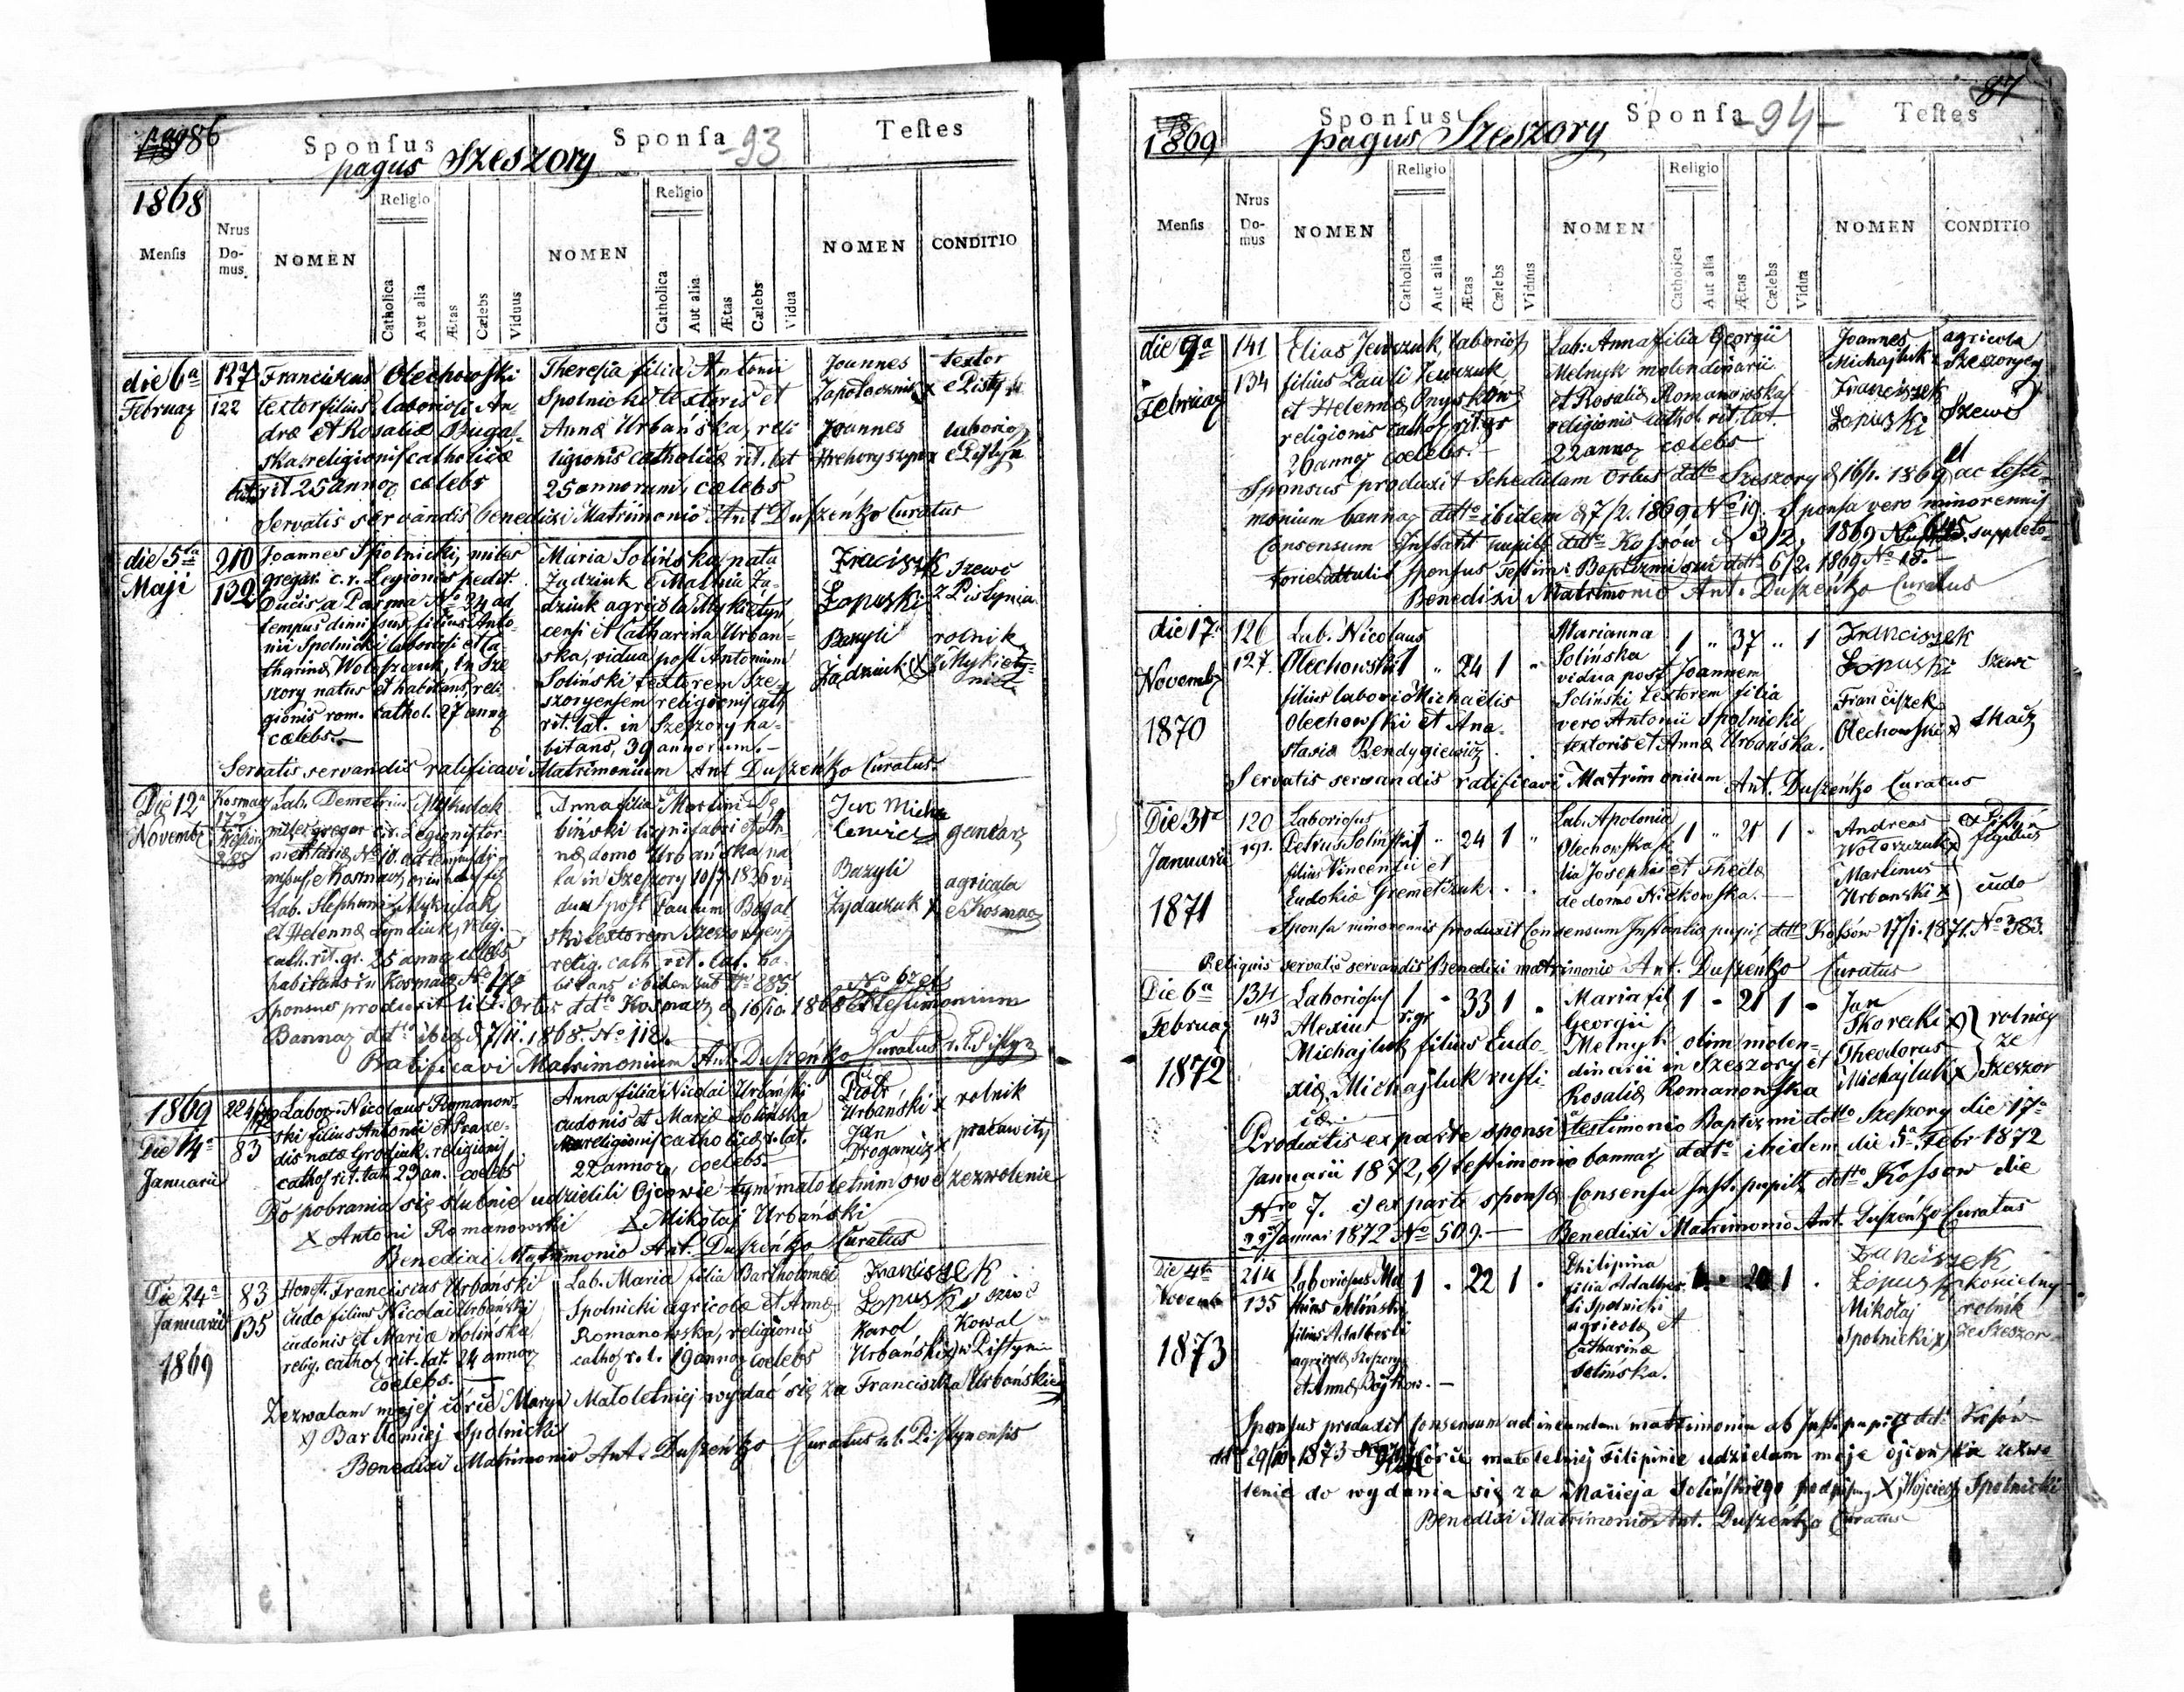 pag 86
Sponſus
Sponſa
93
Teſtes
pagus Szeszory
1868
Menſis
Nrus Do-mus.
NOMEN
Religio
Catholica
Aut alia
Ætas
Cælebs
Viduus
NOMEN
Religio
Catholica
Aut alia
Ætas
Cælebs
Vidua
NOMEN
CONDITIO
die 6a
Februar
127
122
Franciscus Olechowski
textor filius laboriosi An-
dreæ et Rosaliæ Bugal-
ska religionis catholicæ
rit. 25 annor cælebs
Theresia filia Antonii
Spolnicki textoris et
Annæ Urbańska, reli
ligionis catholicæ rit. lat
25 annorum, cælebs
Joannes
textor
Joannes
laborios
Servatis servandis benedixi Matrimonio Ant Duszeńko Curatus
die 5ta
Maji
210
139
Joannes Spolnicki, miles
gregar. c. r. Legionis pedit.
Ducis a Parma No 24 ad
tempus dimissus, filius Anto-
nii Spolnicki laboriosi et Ca-
tharinæ Woloszczuk, in Sze
szory natus et habitans, reli
gionis rom. cathol. 27 anno
cælebs.
Maria Solińska, nata
Żądziuk e Mathia Żą-
dziuk agricola Mykietyn
censi et Catharina Urban-
ska, vidua post Antonium
Soliński textorem Sze-
szoryensem religionis cath
rit. lat. in Szeszory ha-
bitans, 39 annorum.
Łopuski
Szewc
z Pistynia
Bazyli
Żądziuk X
rolnik
Servatis servandis ratificavi Matrimonium Ant Duszeńko Curatus.
Die 12a
Novembr
Kosmacz
172
285
Lab. Demetrius Mykulak
et Helenæ
cath. rit. gr. 25 annor cælebs
habitans in Kosmacz No 172
Anna filia Martini Dę
biński
næ domo Urbańska na
ta in Szeszory 10/7 1826 vi
dua post Paulum Bugal
ski textorem Szeszoryens
relig. cath. rit. lat. ha-
bitans ibidem sub No 285.
gancarz
Bazyli
Żydaczuk X
agricola
e Kosmacz
Sponsus produxit lit. Ortus ddto Kosmacz d 16/10. 1868 et testimonium
Bannor ddto ibid d 7/11. 1868. No 112.
Ratificavi Matrimonium Ant. Duszeńko Curatus r. l. Pistyn
1869
Die 14a
Januarii
83
Labor. Nicolaus Romanow-
ski filius Antonii et Praxe-
dis natæ Grodiuk, religionis
cathol rit. lat. 23 an. coelebs
Anna filia Nicolai Urbański
cudonis et Mariæ Solińska
religionis catholicæ r. lat.
22 annor, coelebs.
Piotr
Urbański X
rolnik
Jan
Droganiuk X
pracowity
Do pobrania się slubnie udzielili Ojcowie tym małoletnim swe zezwolenie
X Antoni Romanowski X Mikołaj Urbański
Benedixi Matrimonio Ant. Duszeńko Curatus
Die 24a
Januarii
1869
83
135
Honest. Franciscus Urbański
Cudo filius Nicolai Urbański
cudonis et Mariæ Solińska
relig. cathol rit. lat. 24 annor
coelebs.
Lab. Maria filia Bartholomei
Spolnicki agricolæ et Annæ
Romanowska, religionis
cathol r. l. 19 annor coelebs
Franciszek
Łopuski
Szewc
Karol
Urbański
Kowal
w Pistynie
Zezwalam mojej córce Maryi Małoletniej wydać się za Franciszka Urbańskiego
X Bartłomiej Spolnicki
Benedixi Matrimonio Ant. Duszeńko Curatus r. l. Pistynensis
87
1869
Sponſus
Sponſa
94
Teſtes
pagus Szeszory
Menſis
Nrus Do-mus
NOMEN
Religio
Catholica
Aut alia
Ætas
Cælebs
Viduus
NOMEN
Religio
Catholica
Aut alia
Ætas
Cælebs
Vidua
NOMEN
CONDITIO
die 9a
Februar
141
134
Elias Jewczuk, laborios
filius Pauli Jewczuk
et Helennæ Onyśków
religionis cathol rit. gr
26 annor coelebs.
Lab: Anna filia Georgii
Melnyk molendinarii
et Rosaliæ Romanowska
religionis cathol. rit. lat.
22 annor cælebs
Joannes
Michajluk X
agricola
Franciszek
Łopuski
Szewc
Sponsus produxit Schedulam Ortus ddto Szeszory d 16/1. 1869 et ac testi-
monium bannor ddto ibidem d 7/2. 1869 No 19. Sponsa vero minorennis
Consensum Instantit pupill ddto Kossów d 3/2. 1869 No 645. suppleto-
torie attulit sponsus Testim. Baptismi sui ddto 6/2. 1869 No 18.
Benedixi Matrimonio Ant. Duszeńko Curatus
die 17a
Novembr
1870
126
127.
Lab. Nicolaus
Olechowski 1 " 24 1 "
filius laborio Michaëlis
Olechowski et Ana-
stasiæ Bendygiewicz
Marianna 1 " 37 " 1
Solińska
vidua post Joannem
Soliński textorem filia
vero Antonii Spolnicki
textoris et Annæ Urbańska.
Franciszek
Łopuski
Szewc
Franciszek
Olechowski X
tkacz
Servatis servandis ratificavi Matrimonium Ant. Duszeńko Curatus
Die 31a
Januarii
1871
120
191.
Laboriosus
Petrus Soliński 1 " 24 1 "
filius Vincentii et
Eudokiæ Gremetczuk.
Lab. Apolonia
Olechowska fi 1 " 21 1 "
lia Josephi et Theclæ
de domo Nickowska.
Andreas
Wołoszczuk X
figulus
Martinus
Urbanski X
cudo
Sponsa minorennis produxit Consensum Instantiæ pupil ddto Kossów 17/1. 1871. No 383.
Reliquis servatis servandis Benedixi matrimonio Ant. Duszeńko Curatus
Die 6a
Februar
1872
134
143
Laboriosus 1 " 33 1 "
Alexius r. gr
Michajluk filius Eudo-
xiæ Michajluk rusti-
cæ
Maria fil 1 - 21 1 -
Georgii
Melnyk olim molen-
dinarii in Szeszory et
Rosaliæ Romanowska
Jan
Skorecki X
Theodorus
Michajluk X
rolnicy
ze
Szeszor
Productis ex parte sponsi a testimonio Baptismi ddto Szeszory die 17a
Januarii 1872, b) testimonio bannor ddto ibidem die 5a Febr 1872
Nro 7. c) ex parte sponsæ Consensu Inst. pupill ddto Kossow die
Januari 1872 No 509. Benedixi Matrimonio Ant. Duszeńko Curatus
Die 4ta
Novemb
1873
214
135
Laboriosus Ma 1 - 22 1 -
thias Soliński
filius Adalberti
agricolæ
Philipina
filia Adalber-
ti Spolnicki
agricolæ et
Catharinæ
Solińska.
Franciszek
Łopuski
kościelny
Mikołaj
Spolnicki X
rolnik
ze Szeszor
Sponsus produxit Consensum ad ineundum matrimonium ab Inst. pupill ddto Kosów
córce małoletniej Filipinie udzielam moje ojcowskie zezwo-
lenie do wydania się za Macieja Solińskiego podpisany X Wojciech Spolnicki
Benedixi Matrimonio Ant. Duszeńko Curatus